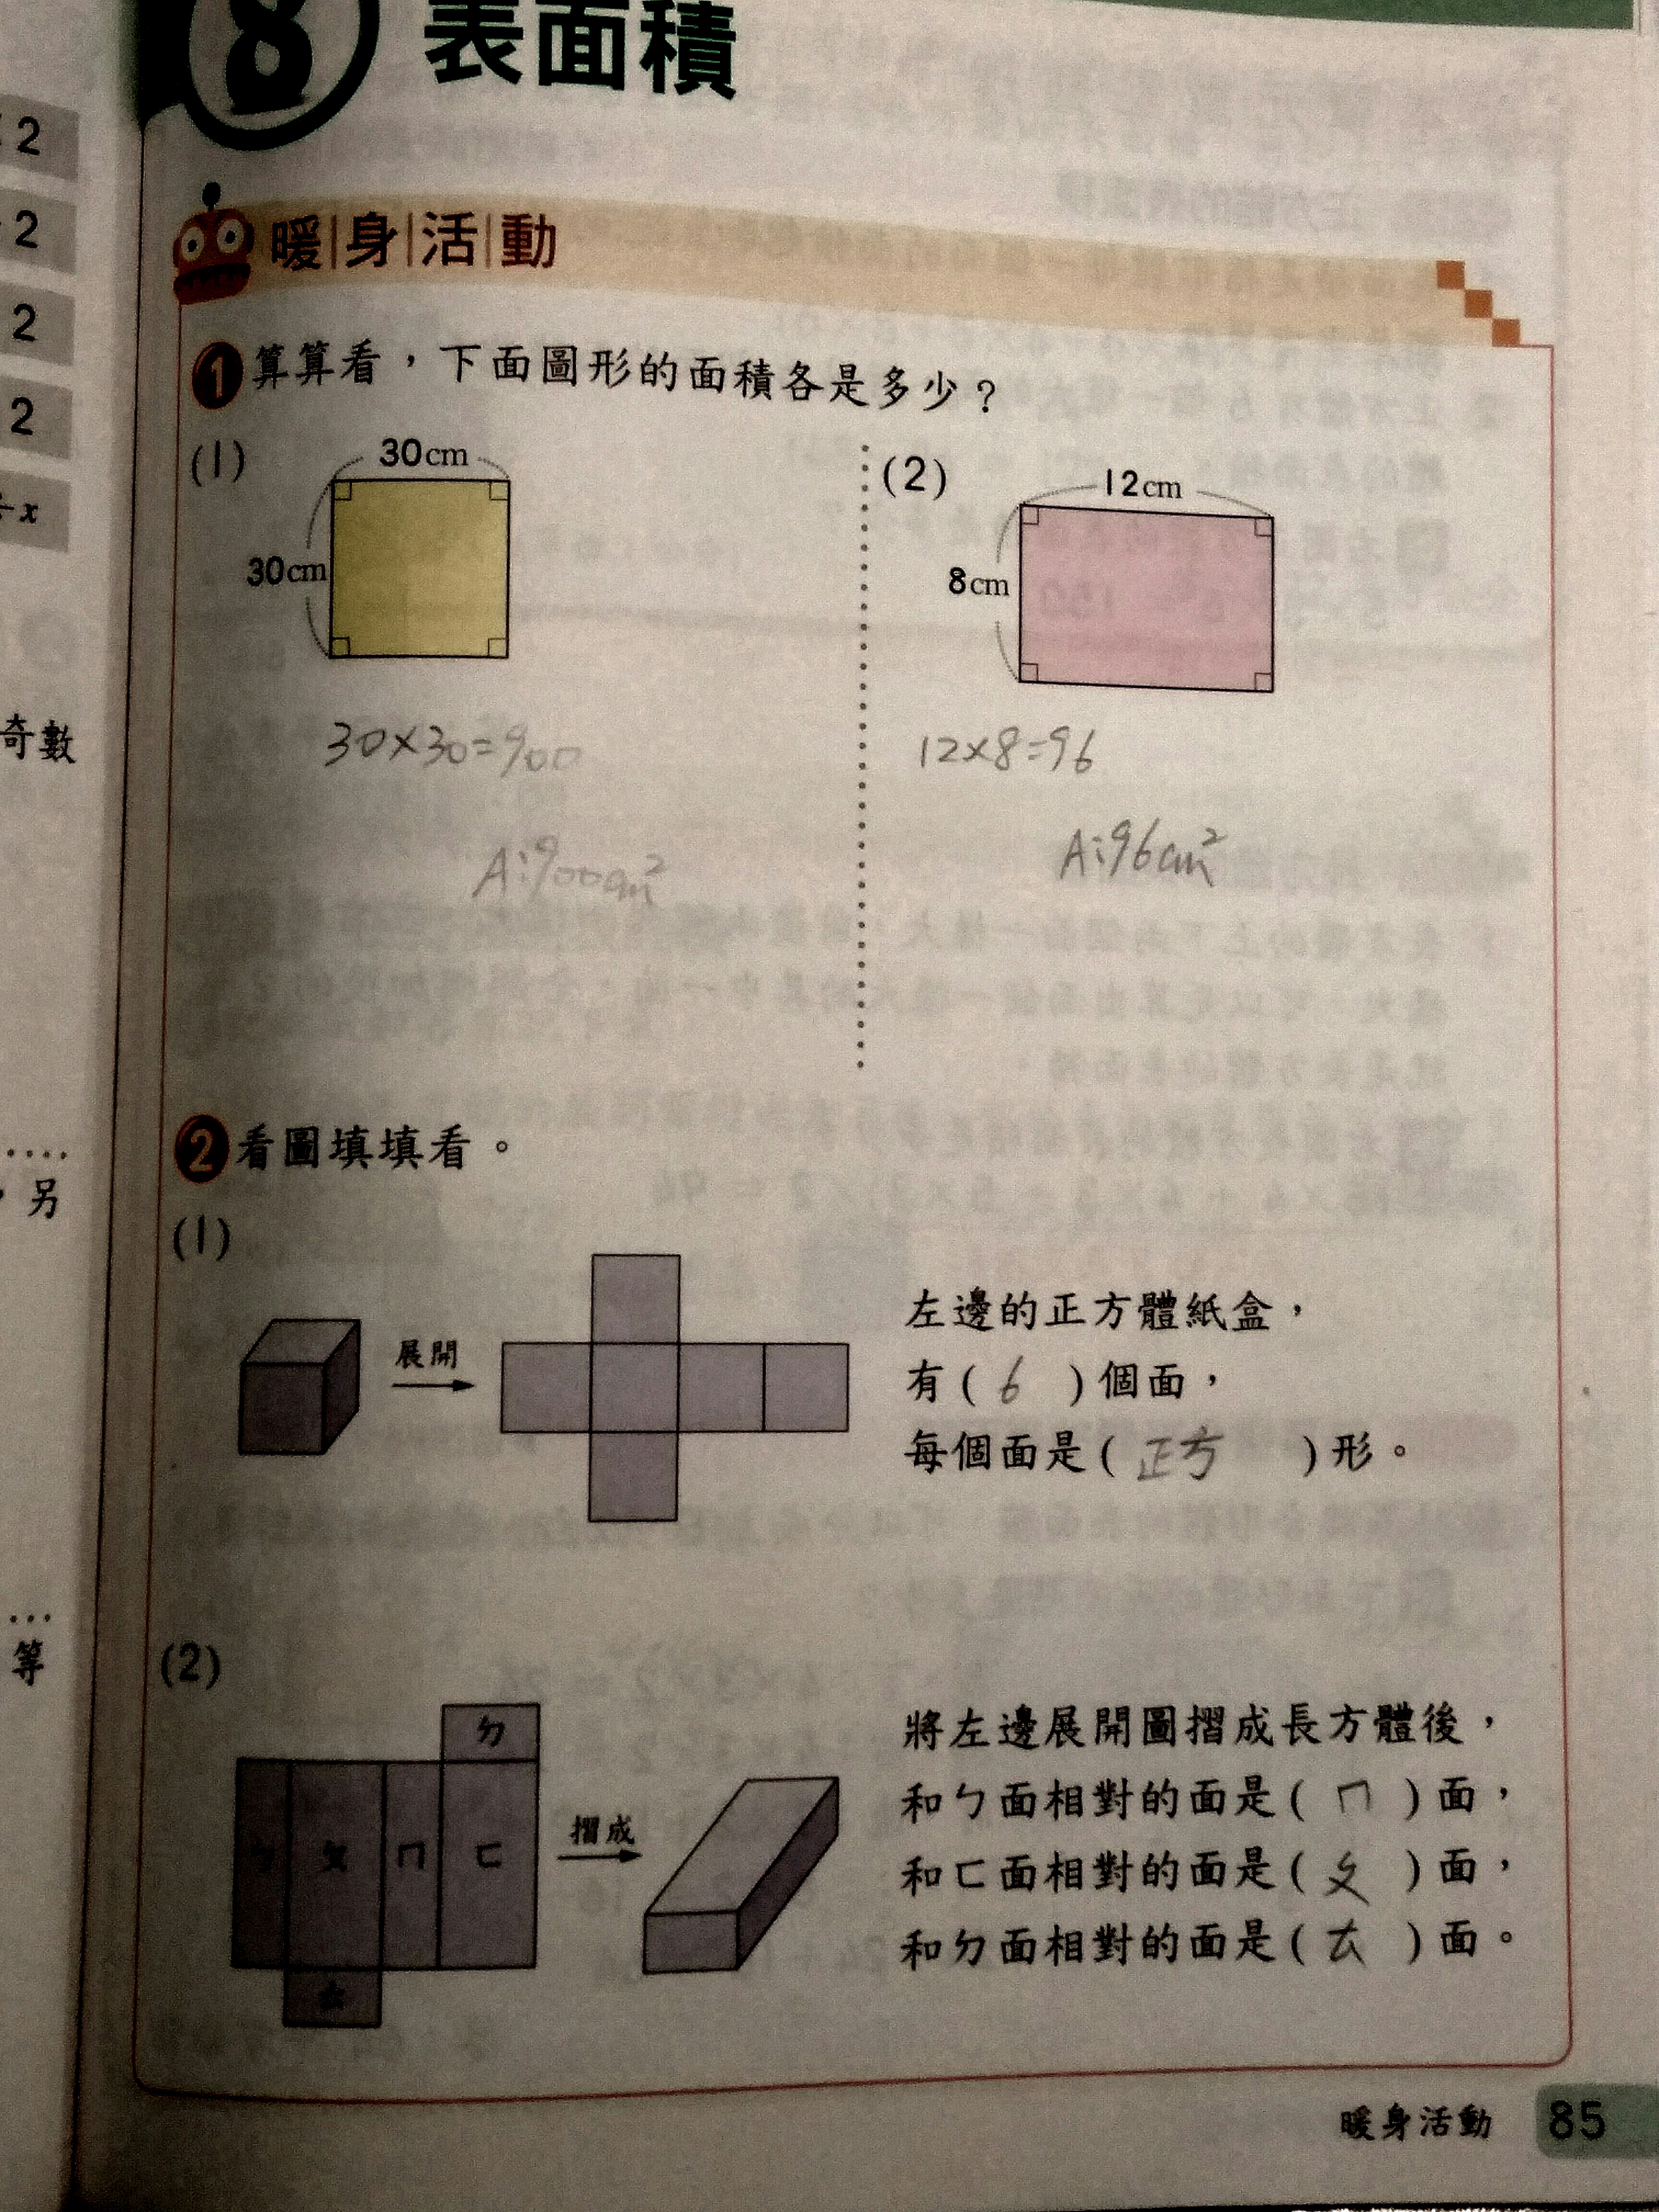 8 表面積
2
2
2
2
÷x
奇數
另
等
暖身活動
1 算算看，下面圖形的面積各是多少？
(1)
30cm
30cm
30×30=900
A:900cm²
(2)
12cm
8cm
12×8=96
A:96cm²
2 看圖填填看。
(1)
展開
左邊的正方體紙盒，
有( 6 )個面，
每個面是( 正方 )形。
(2)
ㄉ
ㄅ ㄆ ㄇ ㄈ
ㄊ
摺成
將左邊展開圖摺成長方體後，
和ㄅ面相對的面是( ㄇ )面，
和ㄈ面相對的面是( ㄆ )面，
和ㄉ面相對的面是( ㄊ )面。
暖身活動 85